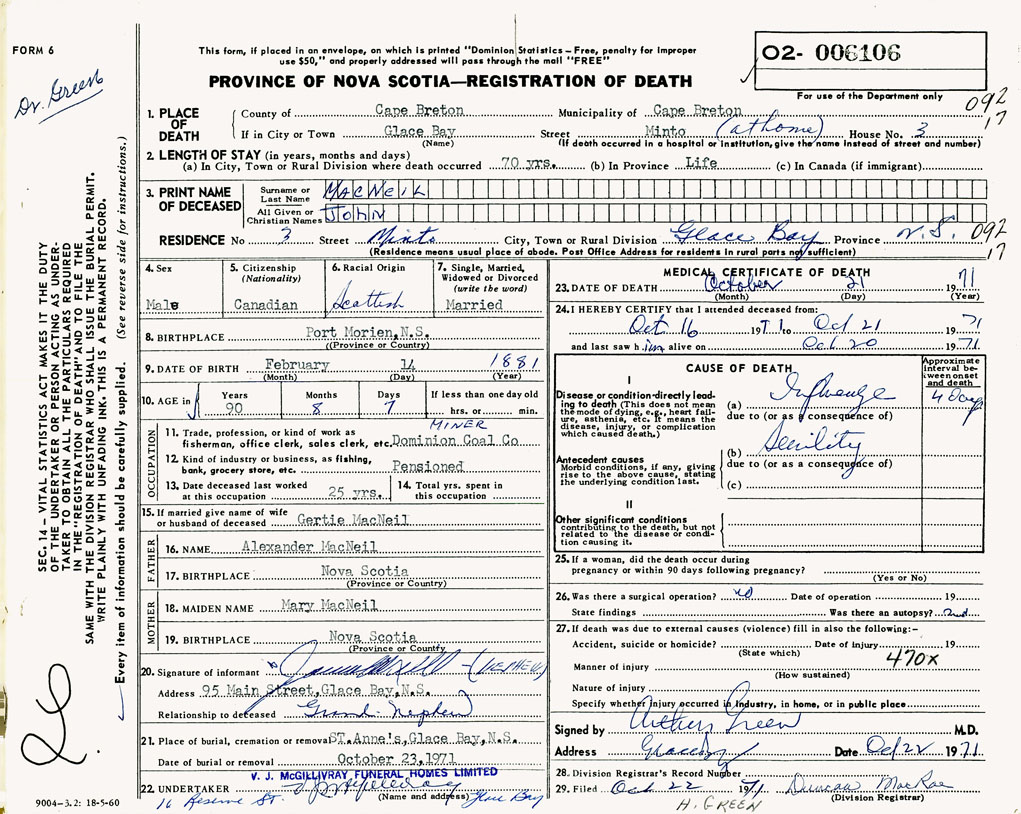 FORM 6
Dr. Green
This form, if placed in an envelope, on which is printed "Dominion Statistics – Free, penalty for improper
use $50," and properly addressed will pass through the mail "FREE"
PROVINCE OF NOVA SCOTIA—REGISTRATION OF DEATH
02- 006106
For use of the Department only
092
17
1. PLACE OF DEATH
County of Cape Breton Municipality of Cape Breton
If in City or Town Glace Bay Street Minto (at home) House No. 3
(Name) (If death occurred in a hospital or institution, give the name instead of street and number)
2. LENGTH OF STAY (in years, months and days)
(a) In City, Town or Rural Division where death occurred 70 yrs. (b) In Province Life (c) In Canada (if immigrant)
3. PRINT NAME OF DECEASED
Surname or Last Name MACNEIL
All Given or Christian Names JOHN
RESIDENCE No 3 Street Minto City, Town or Rural Division Glace Bay Province N.S. 092
(Residence means usual place of abode. Post Office Address for residents in rural parts not sufficient) 17
4. Sex
Male
5. Citizenship
(Nationality)
Canadian
6. Racial Origin
Scottish
7. Single, Married,
Widowed or Divorced
(write the word)
Married
8. BIRTHPLACE Port Morien, N.S.
(Province or Country)
9. DATE OF BIRTH February 14 1881
(Month) (Day) (Year)
10. AGE in Years Months Days If less than one day old
90 8 7 hrs. or min.
OCCUPATION
MINER
11. Trade, profession, or kind of work as
fisherman, office clerk, sales clerk, etc. Dominion Coal Co
12. Kind of industry or business, as fishing,
bank, grocery store, etc. Pensioned
13. Date deceased last worked
at this occupation 25 yrs.
14. Total yrs. spent in
this occupation
15. If married give name of wife
or husband of deceased Gertie MacNeil
FATHER
16. NAME Alexander MacNeil
17. BIRTHPLACE Nova Scotia
(Province or Country)
MOTHER
18. MAIDEN NAME Mary MacNeil
19. BIRTHPLACE Nova Scotia
(Province or Country
20. Signature of informant (NEPHEW)
Address 95 Main Street, Glace Bay, N.S.
Relationship to deceased Grand-Nephew
21. Place of burial, cremation or removal ST. Anne's, Glace Bay, N.S.
Date of burial or removal October 23, 1971
V. J. McGILLIVRAY FUNERAL HOMES LIMITED
22. UNDERTAKER
(Name and address)
16 Reserve St. Glace Bay
MEDICAL CERTIFICATE OF DEATH
23. DATE OF DEATH October 21 1971
(Month) (Day) (Year)
24. I HEREBY CERTIFY that I attended deceased from:
Oct 16 1971 to Oct 21 1971
and last saw h im alive on Oct 20 1971
CAUSE OF DEATH
Approximate
interval be-
tween onset
and death
I
Disease or condition directly lead-
ing to death (This does not mean
the mode of dying, e.g., heart fail-
ure, asthenia, etc. It means the
disease, injury, or complication
which caused death.)
(a) Influenza 4 Days
due to (or as a consequence of)
Antecedent causes
Morbid conditions, if any, giving
rise to the above cause, stating
the underlying condition last.
(b) Senility
due to (or as a consequence of)
(c)
II
Other significant conditions
contributing to the death, but not
related to the disease or condi-
tion causing it.
25. If a woman, did the death occur during
pregnancy or within 90 days following pregnancy?
(Yes or No)
26. Was there a surgical operation? no Date of operation 19
State findings Was there an autopsy?
27. If death was due to external causes (violence) fill in also the following:—
Accident, suicide or homicide? Date of injury 19
(State which) 470X
Manner of injury
(How sustained)
Nature of injury
Specify whether injury occurred in industry, in home, or in public place
Signed by Arthur Green M.D.
Address Glace Bay Date Oct 22 1971
28. Division Registrar's Record Number
29. Filed Oct 22 1971 Duncan MacRae
(Division Registrar)
H. GREEN
SEC. 14 – VITAL STATISTICS ACT MAKES IT THE DUTY
OF THE UNDERTAKER OR PERSON ACTING AS UNDER-
TAKER TO OBTAIN ALL THE PARTICULARS REQUIRED
IN THE "REGISTRATION OF DEATH" AND TO FILE THE
SAME WITH THE DIVISION REGISTRAR WHO SHALL ISSUE THE BURIAL PERMIT.
WRITE PLAINLY WITH UNFADING INK. THIS IS A PERMANENT RECORD.
Every item of information should be carefully supplied. (See reverse side for instructions.)
9004-3.2: 18-5-60